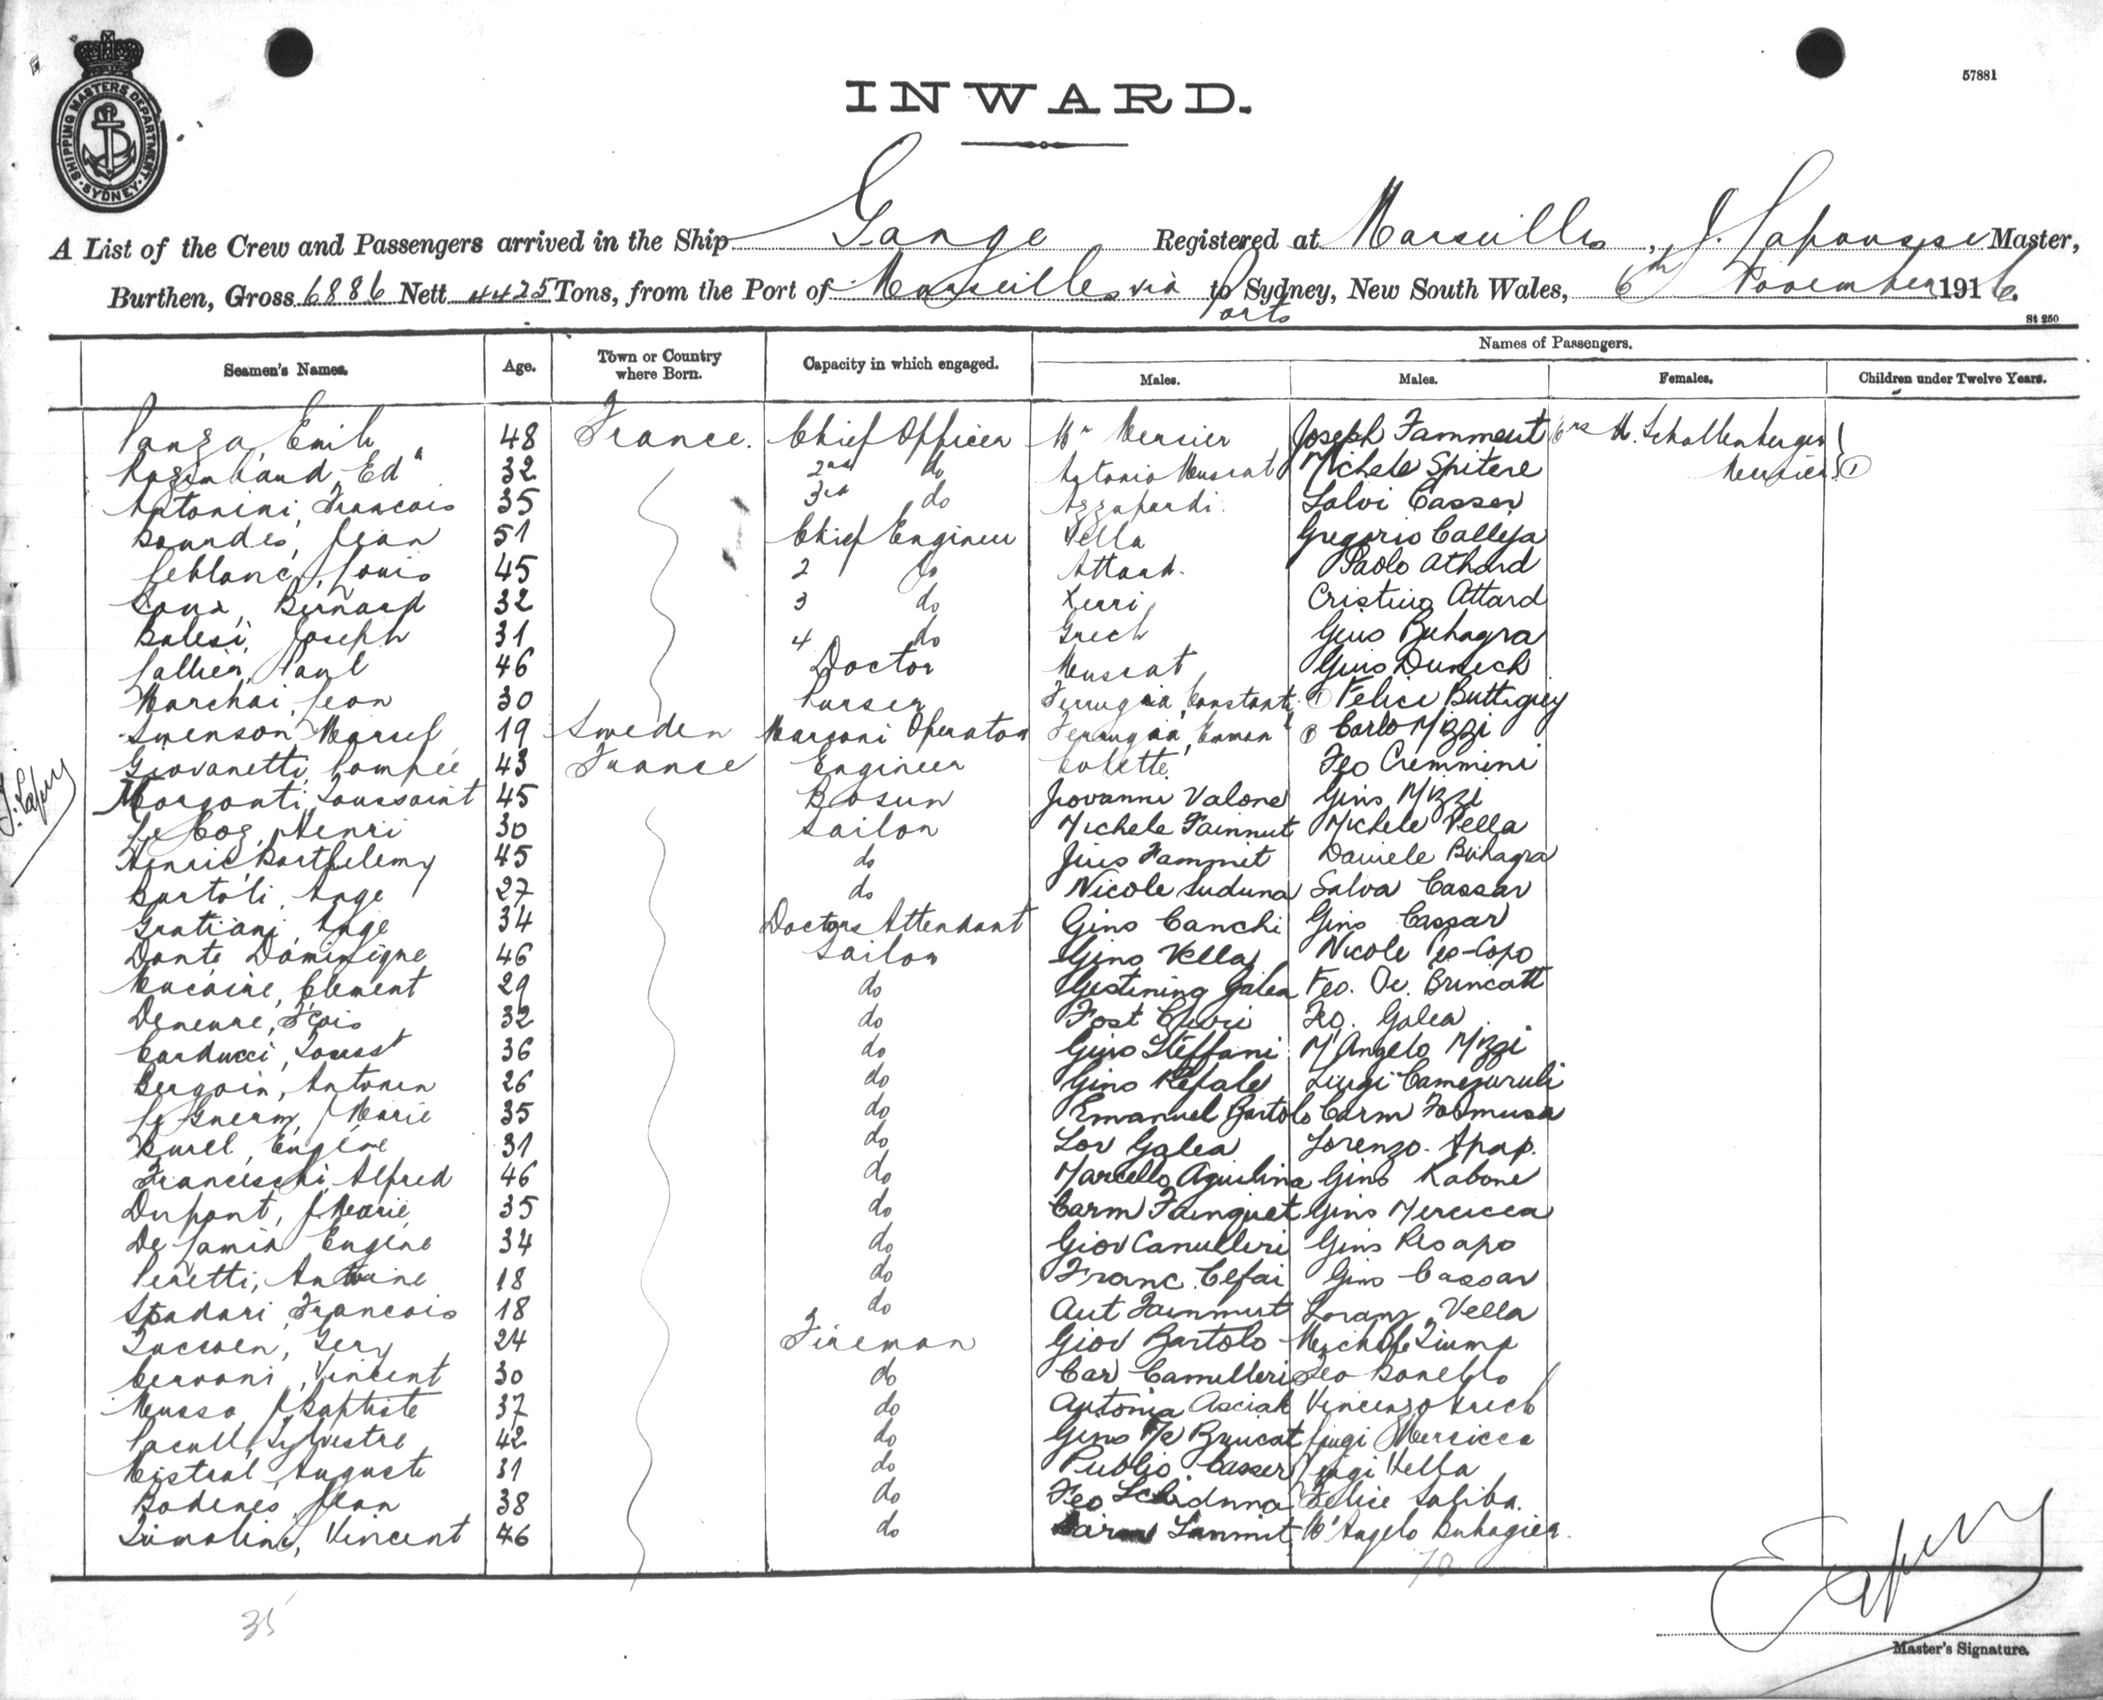 57881
SHIPPING MASTERS DEPARTMENT · SYDNEY ·
INWARD.
A List of the Crew and Passengers arrived in the Ship Gange Registered at Marseilles, J. Master,
Burthen, Gross 6886 Nett 4425 Tons, from the Port of Marseilles via Ports to Sydney, New South Wales, 6th November 1916.
St 250
Seamen's Names. Age. Town or Country where Born. Capacity in which engaged. Names of Passengers.
Males. Males. Females. Children under Twelve Years.
Panza, Emile 48 France. Chief Officer Mr Mercier Joseph Fammeut Mrs M. Schallenberger
Ed 32 2nd do Antonio Muscat Michele Spitere Mercier 1
Antonini, Francois 35 3rd do Azzopardi. Salvi Casser
Bourdes, Jean 51 Chief Engineer Vella Gregorio Calleja
Leblanc, Louis 45 2 do Attard. Paolo Athard
Bernard 32 3 do Xerri Cristino Attard
Balesi, Joseph 31 4 do Grech Gius Buhagra
Paul 46 Doctor Muscat Gius Dumech
Marchai, Jean 30 Purser Ferrugia, Constant 1 Felice Buttagieg
Swenson Marcel 19 Sweden Marconi Operator Ferrugia, Carlo Mizzi
Giovanetti, Pompée 43 France Engineer Colette Feo Cremmini
Morganti, Toussaint 45 Bosun Jiovanni Valone Gius Mizzi
Le Coz, Henri 30 Sailor Michele Fammut Michele Vella
Henric Barthelemy 45 do Jius Fammit Daniele Buhagra
Bartoli, Ange 27 do Nicole Suduna Salva Cassar
Gratiani, Ange 34 Doctors Attendant Gins Canchi Gins Cassar
Dante Dominique 46 Sailor Gins Vella Nicole
Clement 29 do Galea Feo. De. Brincatt
Fçois 32 do Galea
Carducci, Tousst 36 do Gius Steffani M'Angelo Mizzi
Bergoin, Antonin 26 do Gins Refale Luigi
J Marie 35 do Emanuel Bartolo Carm Formusa
Burel, Eugéne 31 do Galea Lorenzo. Apap.
Franceschi, Alfred 46 do Marcello Aguilina Gins Kabone
Dupont, J Marie 35 do Carm Gins Mercieca
Eugéne 34 do Giov Camilleri Gins
Peretti, Antoine 18 do Franc. Cefai Gins Cassar
Spadari, Francois 18 do Ant Fammut Loranz. Vella
Gery 24 Fireman Giov Bartolo
Cervoni, Vincent 30 do Car Camilleri Feo Bonello
Musso, J Baptiste 37 do Antonia Asciak Vincenzo Grech
Sylvestre 42 do Gins Brincat Luigi Mercieca
Mistral, Auguste 31 do Publio Casser Luigi Vella
Bodenes, Jean 38 do Feo Felice Saliba.
Vincent 46 do M'Angelo Buhagier.
70
35
Master's Signature.